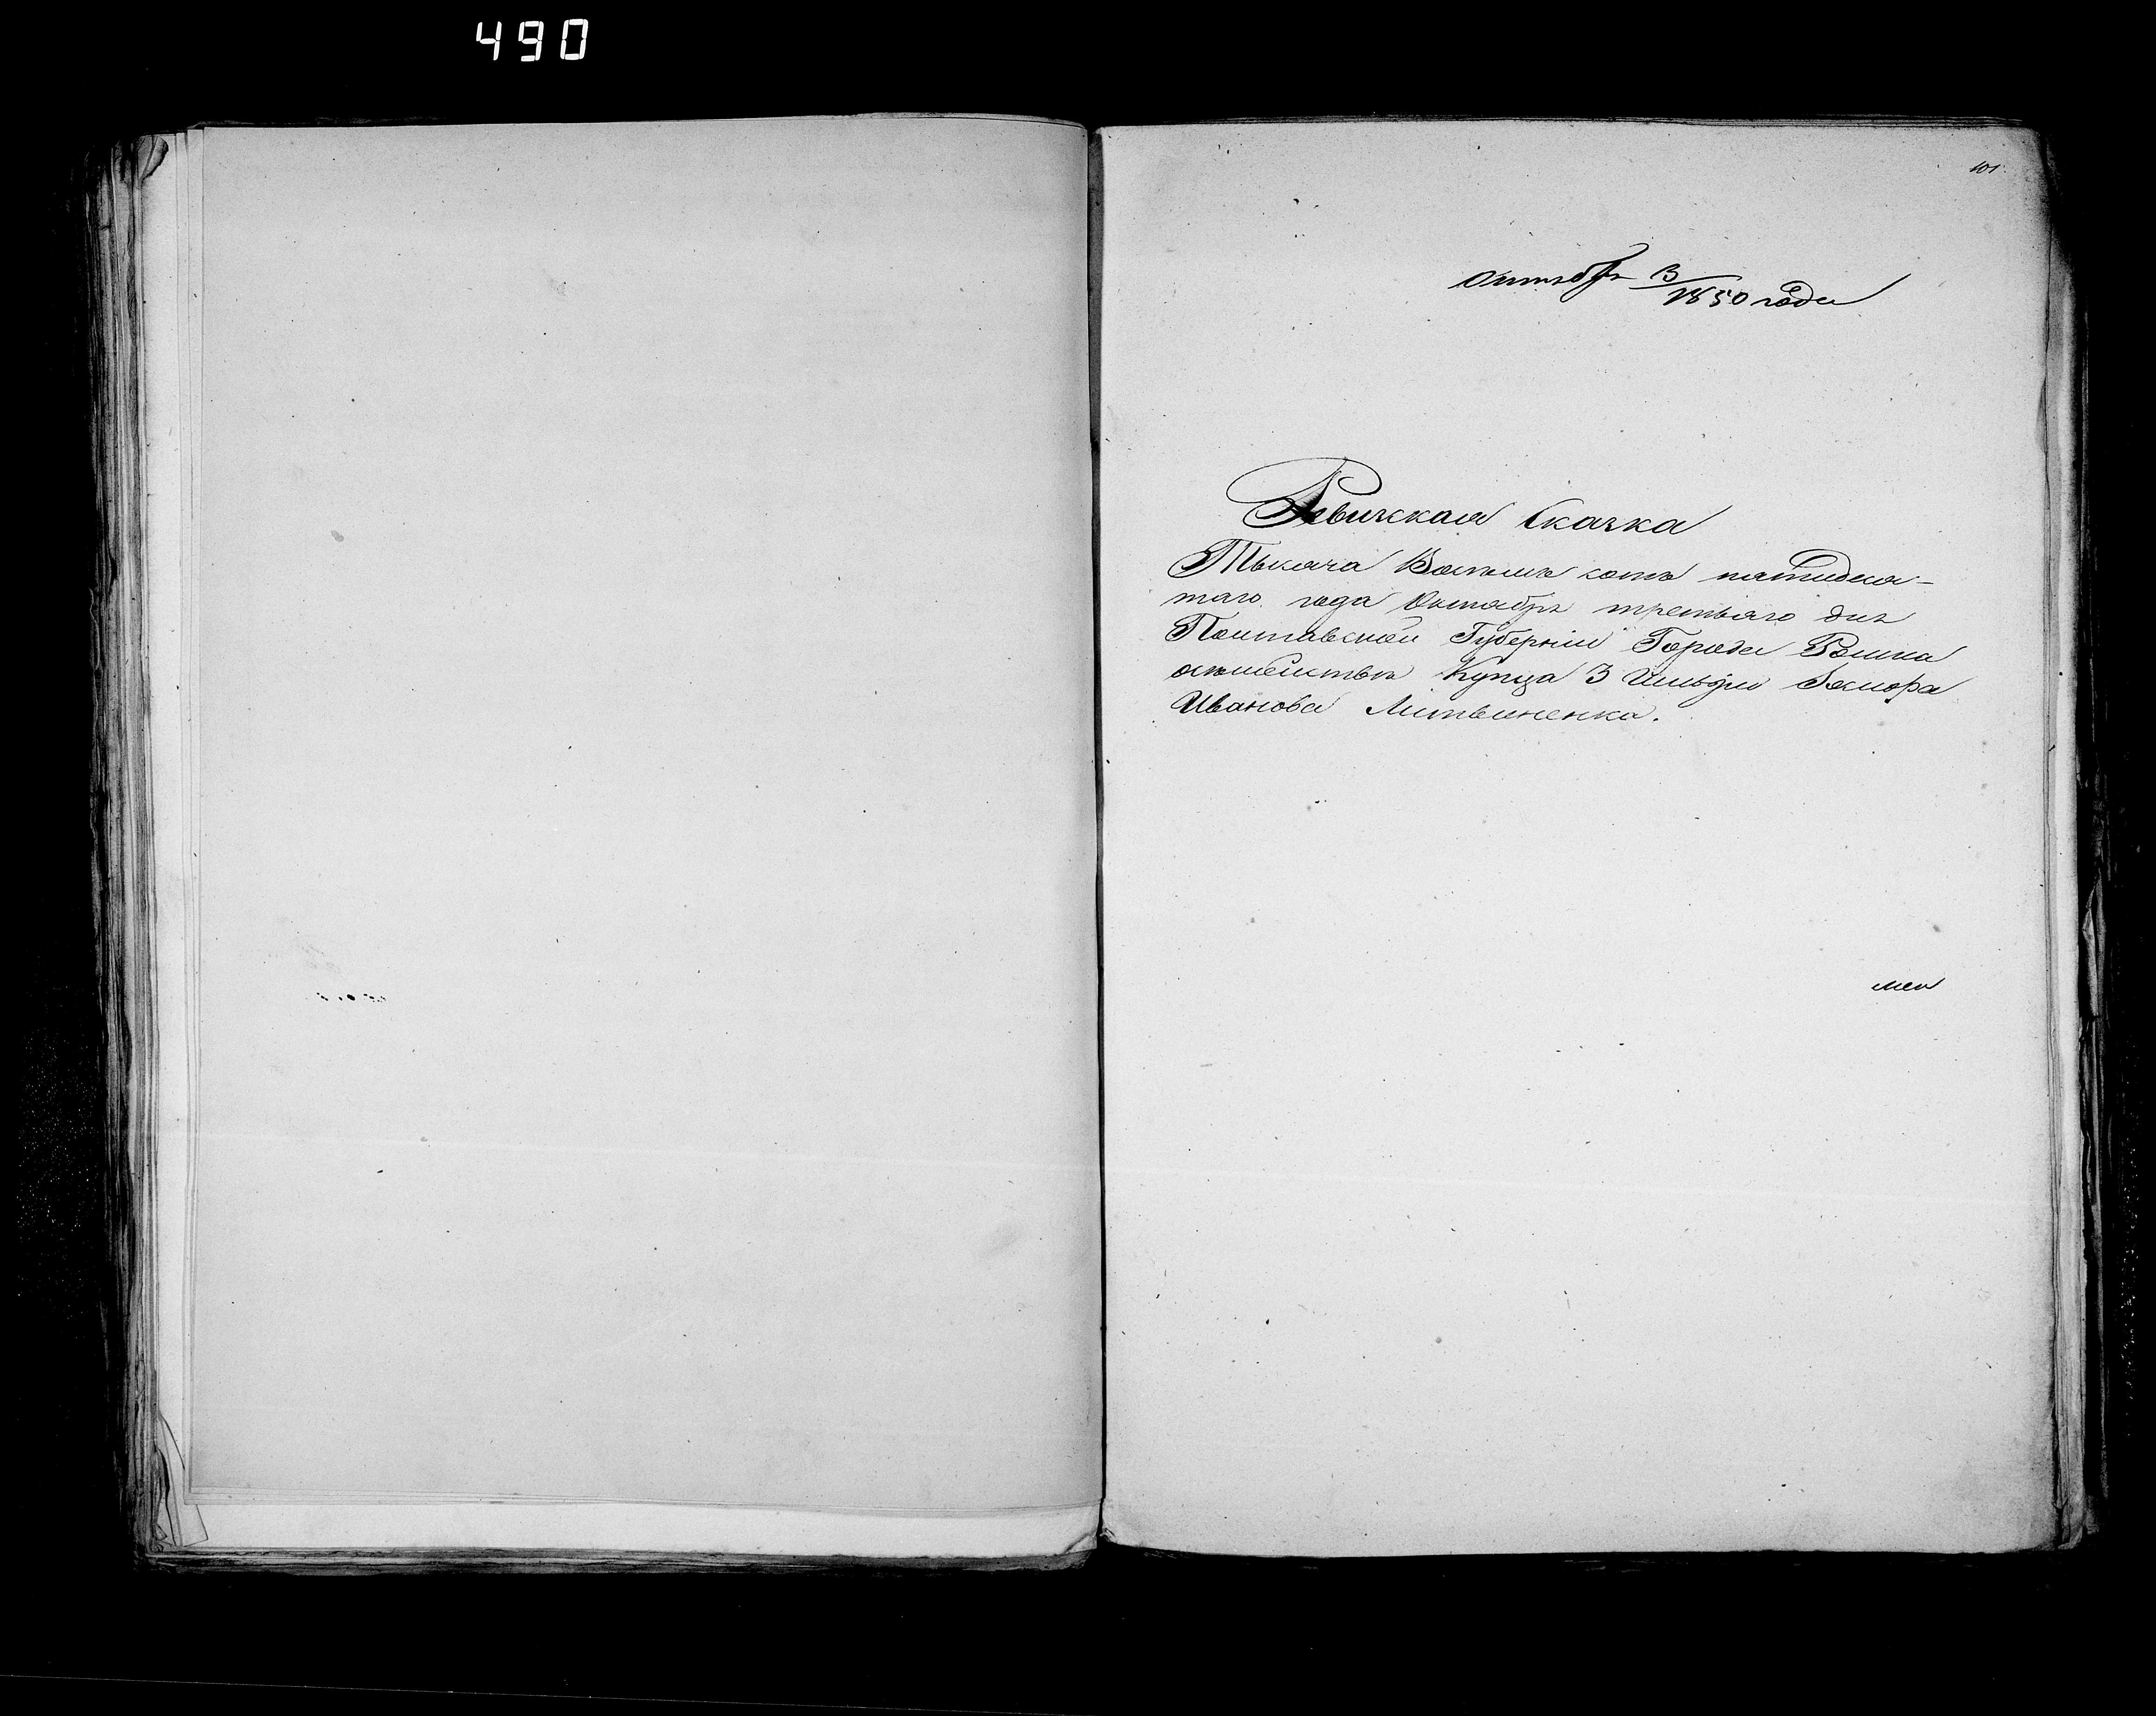 490
101
Октября 3
1850 года
Ревизская Сказка
Тысяча Восемь сотъ пятидеся-
таго года Октября третьяго дня
Полтавской Губерніи Города Ромна
Купца 3 Гильдіи
Иванова Литвиненка.